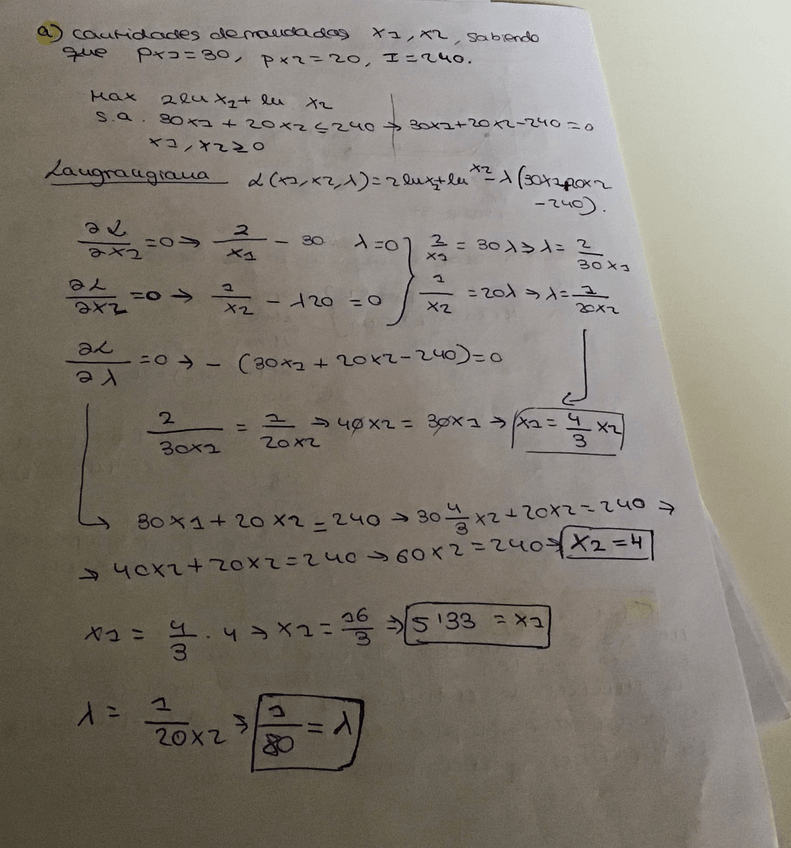 a) cantidades demandadas x1, x2, sabiendo
que px1=30, px2=20, I=240.
Max 2lu x1 + lu x2
s.a. 30x1 + 20x2 ≤ 240 → 30x1+20x2-240=0
x1, x2 ≥ 0
Laugraugiana L(x1, x2, λ) = 2lux1+lu x2 - λ(30x1+20x2
-240).
∂L/∂x1 = 0 → 2/x1 - 30 λ = 0 } 2/x1 = 30λ → λ = 2/30x1
∂L/∂x2 = 0 → 1/x2 - λ20 = 0 } 1/x2 = 20λ → λ = 1/20x2
∂L/∂λ = 0 → - (30x1 + 20x2 - 240) = 0
2/30x1 = 1/20x2 → 40x2 = 30x1 → x1 = 4/3 x2
30x1 + 20x2 = 240 → 30 4/3 x2 + 20x2 = 240 →
→ 40x2 + 20x2 = 240 → 60x2 = 240 → x2 = 4
x1 = 4/3 · 4 → x1 = 16/3 → 5'33 = x1
λ = 1/20x2 → 1/80 = λ